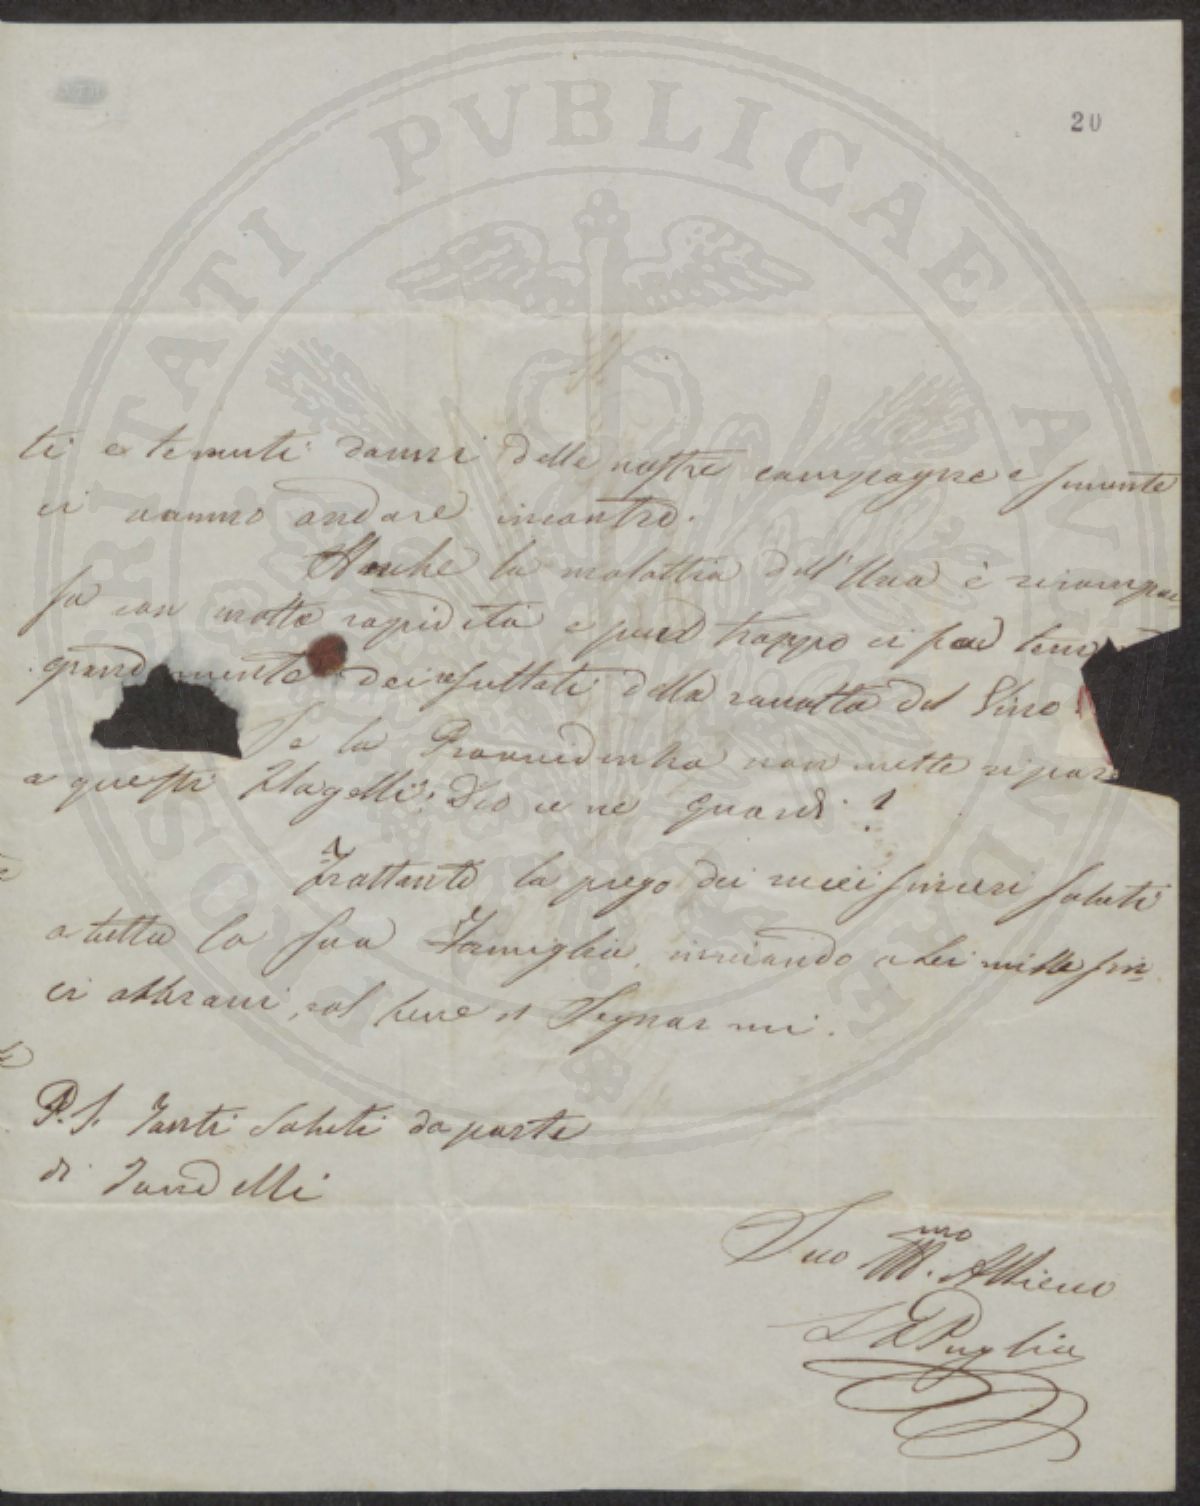 20
ti e temuti danni delle nostre campagne e sementi
ci vanno andare incontro.
Anche la malattia dell'Uva è ricompar
sa con molta rapidità e pur troppo ci fa tem
grandemente dei resultati della raccolta del Vino
Se la Provvidenza non mette ripar
a questi flagelli; Dio ce ne guardi!
Frattanto la prego dei miei sinceri saluti
a tutta la sua Famiglia, inviando a Lei mille sin
ci abbracci, col bene di Segnarmi.
P.S. Tanti Saluti da parte
di Tardelli
Suo Aff.mo Allievo
Puglia
VTILITATI PVBLICAE